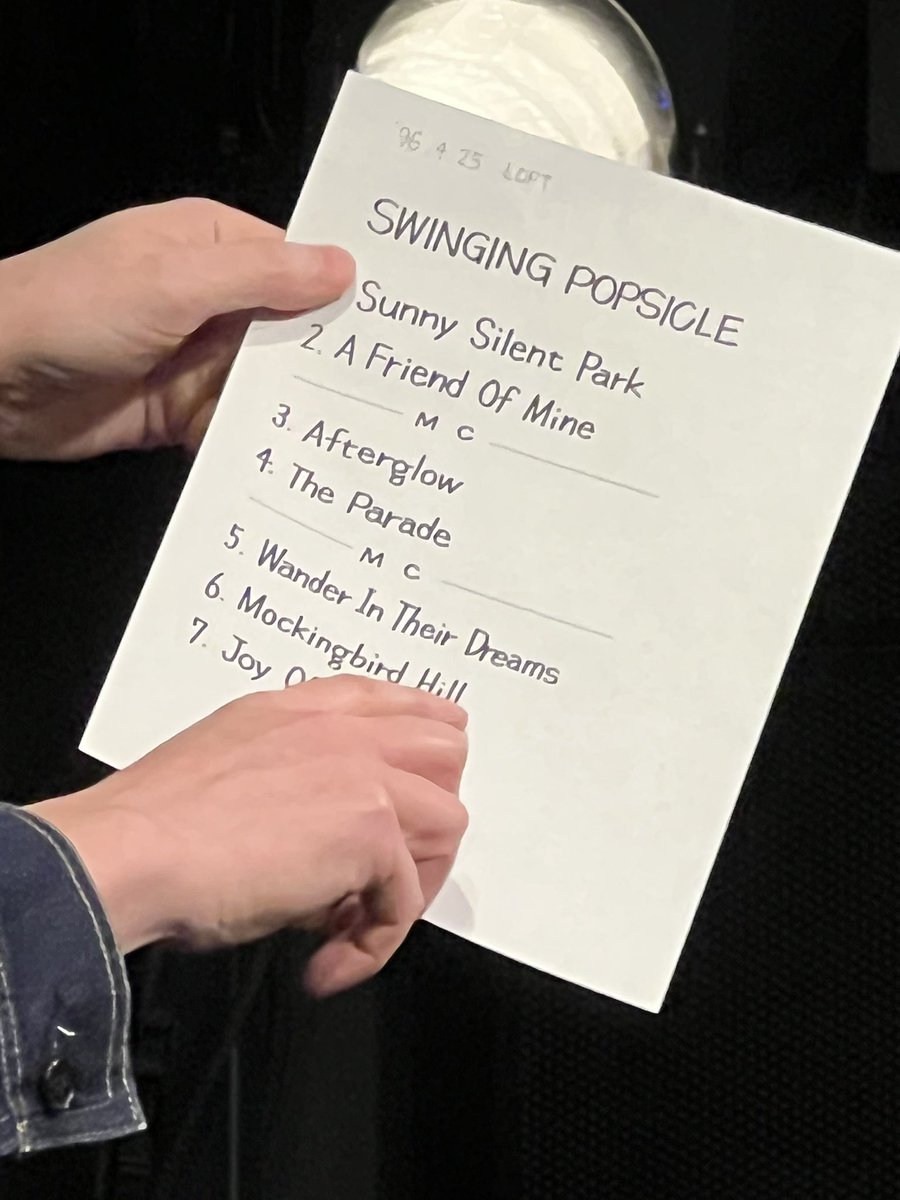 96 4 25 LOFT
SWINGING POPSICLE
Sunny Silent Park
2. A Friend Of Mine
M C
3. Afterglow
4. The Parade
M C
5. Wander In Their Dreams
6. Mockingbird Hill
7. Joy